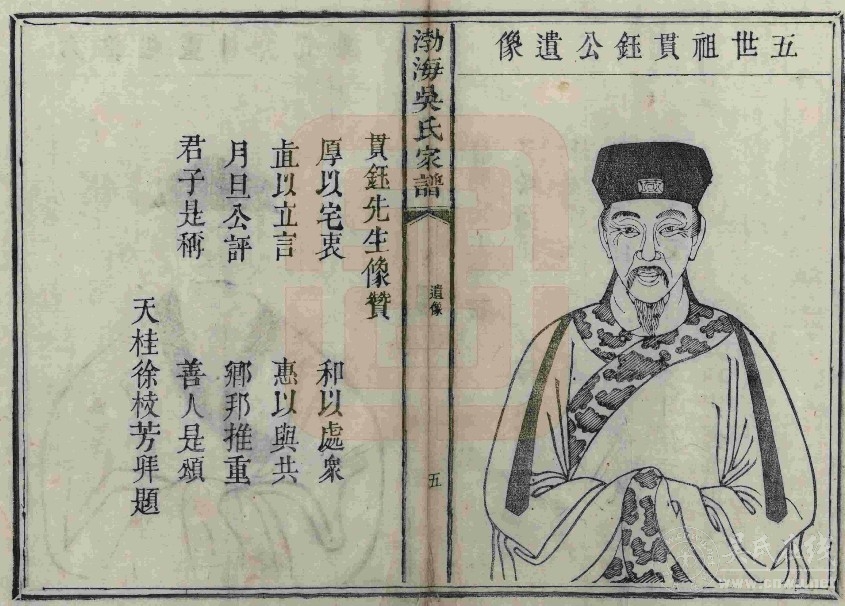 五世祖貫鈺公遺像
渤海吳氏家譜
遺像
五
貫鈺先生像贊
厚以宅衷 和以處衆
直以立言 惠以與共
月旦公評 鄉邦推重
君子是稱 善人是頌
天桂徐校芳拜題
吴氏在线